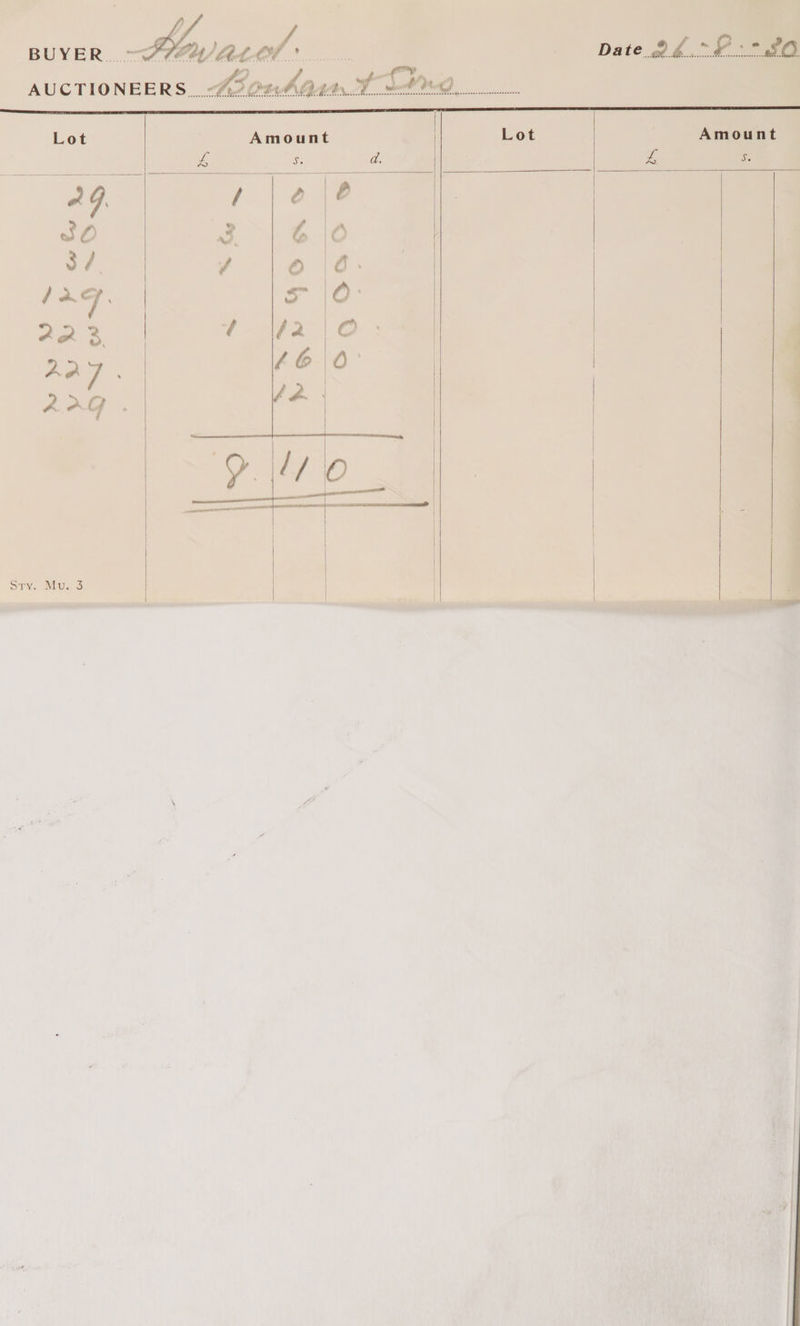 BUYER Howard. Date 26 - 8 - 30
AUCTIONEERS Bonham & Sons
Lot Amount Lot Amount
£ s. d. £ s.
29. 1 0 0
30 3 6 0
31 1 0 0.
129. 5 0.
223 1 12 0.
227. 16 0.
229. 12.
8. 11 0
Sty. Mu. 3